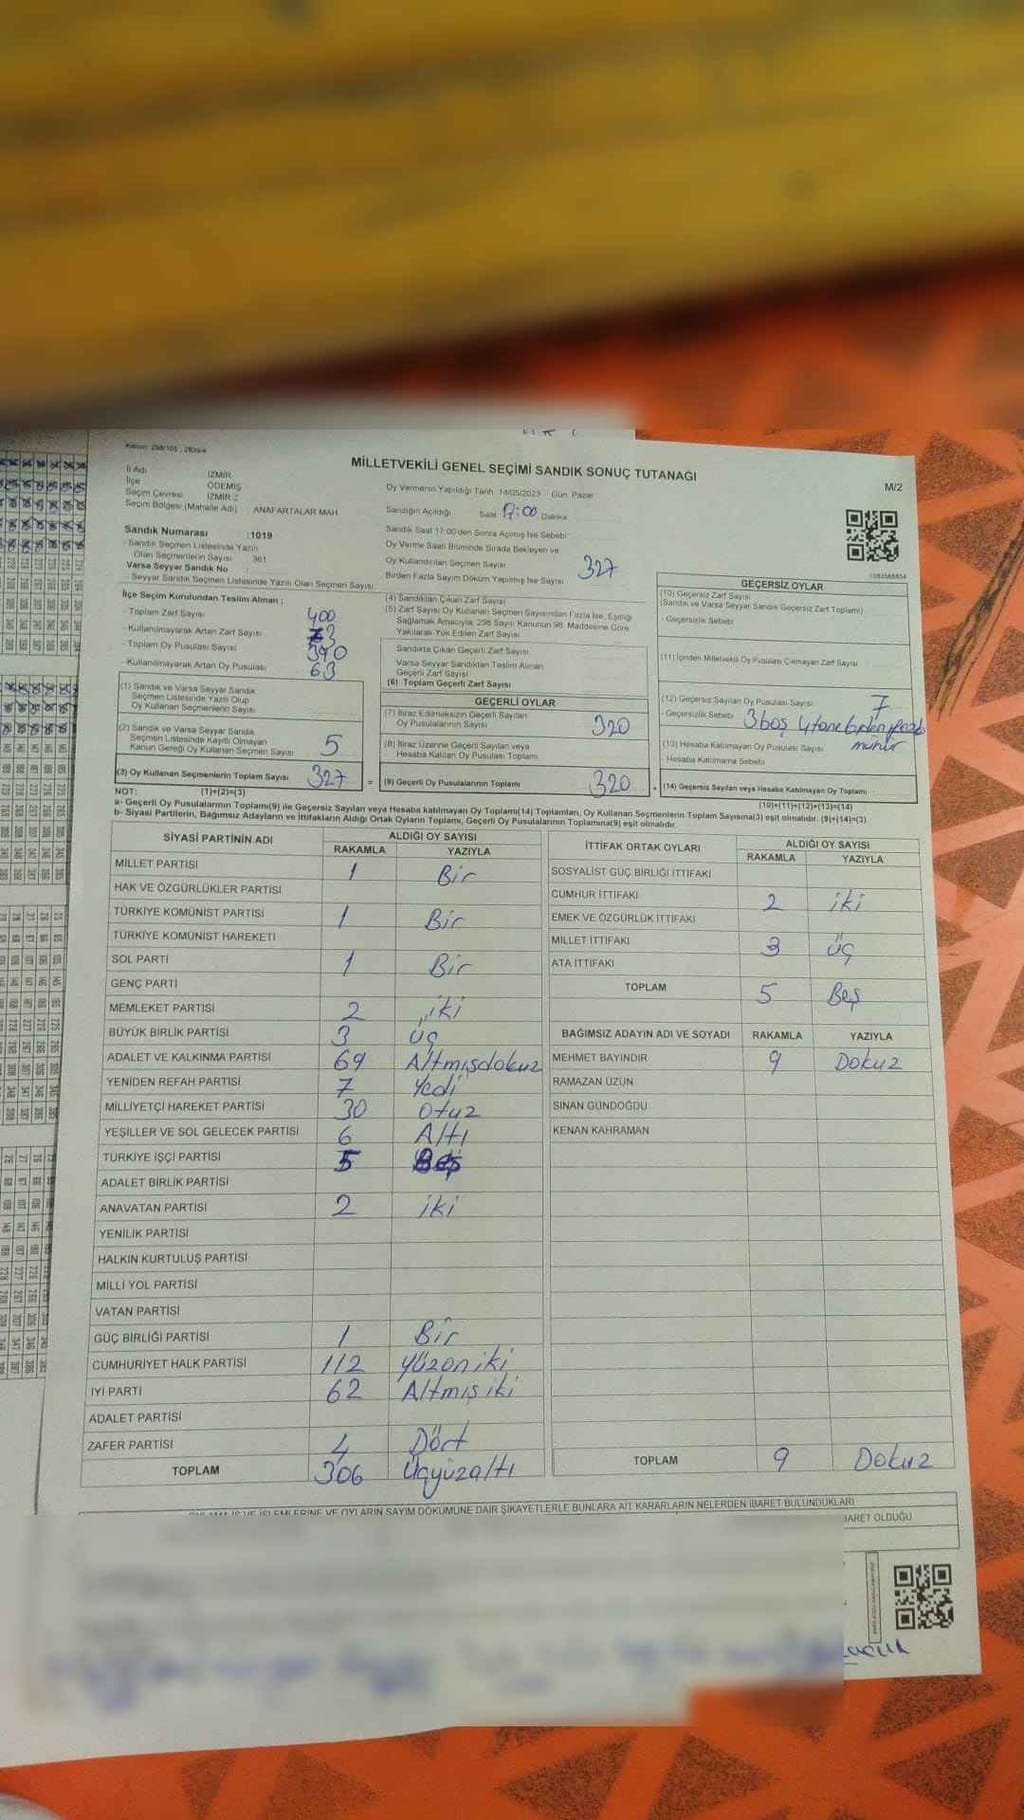 MİLLETVEKİLİ GENEL SEÇİMİ SANDIK SONUÇ TUTANAĞI
M/2
İl Adı İZMİR
İlçe ÖDEMİŞ
Seçim Çevresi İZMİR 2
Seçim Bölgesi (Mahalle Adı) ANAFARTALAR MAH
Oy Vermenin Yapıldığı Tarih 14/05/2023 Gün Pazar
Sandığın Açıldığı Saat 17:00 Dakika
Sandık Saat 17:00'den Sonra Açılmış İse Sebebi
Oy Verme Saati Bitiminde Sırada Bekleyen ve
Oy Kullandırılan Seçmen Sayısı 327
Birden Fazla Sayım Döküm Yapılmış İse Sayısı
Sandık Numarası :1019
- Sandık Seçmen Listesinde Yazılı
Olan Seçmenlerin Sayısı : 361
Varsa Seyyar Sandık No :
- Seyyar Sandık Seçmen Listesinde Yazılı Olan Seçmen Sayısı
İlçe Seçim Kurulundan Teslim Alınan ;
- Toplam Zarf Sayısı 400
- Kullanılmayarak Artan Zarf Sayısı 73
- Toplam Oy Pusulası Sayısı 390
- Kullanılmayarak Artan Oy Pusulası 63
(1) Sandık ve Varsa Seyyar Sandık
Seçmen Listesinde Yazılı Olup
Oy Kullanan Seçmenlerin Sayısı
(2) Sandık ve Varsa Seyyar Sandık
Seçmen Listesinde Kayıtlı Olmayan
Kanun Gereği Oy Kullanan Seçmen Sayısı 5
(3) Oy Kullanan Seçmenlerin Toplam Sayısı 327
(4) Sandıktan Çıkan Zarf Sayısı
(5) Zarf Sayısı Oy Kullanan Seçmen Sayısından Fazla İse, Eşitliği
Sağlamak Amacıyla 298 Sayılı Kanunun 98. Maddesine Göre
Yakılarak Yok Edilen Zarf Sayısı
Sandıkta Çıkan Geçerli Zarf Sayısı
Varsa Seyyar Sandıktan Teslim Alınan
Geçerli Zarf Sayısı
(6) Toplam Geçerli Zarf Sayısı
GEÇERLİ OYLAR
(7) İtiraz Edilmeksizin Geçerli Sayılan
Oy Pusulalarının Sayısı 320
(8) İtiraz Üzerine Geçerli Sayılan veya
Hesaba Katılan Oy Pusulası Toplamı
= (9) Geçerli Oy Pusulalarının Toplamı 320
GEÇERSİZ OYLAR
(10) Geçersiz Zarf Sayısı
(Sandık ve Varsa Seyyar Sandık Geçersiz Zarf Toplamı)
- Geçersizlik Sebebi
(11) İçinden Milletvekili Oy Pusulası Çıkmayan Zarf Sayısı
(12) Geçersiz Sayılan Oy Pusulası Sayısı 7
- Geçersizlik Sebebi 3 boş 4 tane birden fazla
mühür
(13) Hesaba Katılmayan Oy Pusulası Sayısı
Hesaba Katılmama Sebebi
+ (14) Geçersiz Sayılan veya Hesaba Katılmayan Oy Toplamı
NOT: (1)+(2)=(3) (10)+(11)+(12)+(13)=(14)
a- Geçerli Oy Pusulalarının Toplamı(9) ile Geçersiz Sayılan veya Hesaba katılmayan Oy Toplamı(14) Toplamları, Oy Kullanan Seçmenlerin Toplam Sayısına(3) eşit olmalıdır. (9)+(14)=(3)
b- Siyasi Partilerin, Bağımsız Adayların ve İttifakların Aldığı Ortak Oyların Toplamı, Geçerli Oy Pusulalarının Toplamına(9) eşit olmalıdır.
SİYASİ PARTİNİN ADI ALDIĞI OY SAYISI
RAKAMLA YAZIYLA
MİLLET PARTİSİ 1 Bir
HAK VE ÖZGÜRLÜKLER PARTİSİ
TÜRKİYE KOMÜNİST PARTİSİ 1 Bir
TÜRKİYE KOMÜNİST HAREKETİ
SOL PARTİ 1 Bir
GENÇ PARTİ
MEMLEKET PARTİSİ 2 iki
BÜYÜK BİRLİK PARTİSİ 3 üç
ADALET VE KALKINMA PARTİSİ 69 Altmışdokuz
YENİDEN REFAH PARTİSİ 7 Yedi
MİLLİYETÇİ HAREKET PARTİSİ 30 Otuz
YEŞİLLER VE SOL GELECEK PARTİSİ 6 Altı
TÜRKİYE İŞÇİ PARTİSİ 5 Beş
ADALET BİRLİK PARTİSİ
ANAVATAN PARTİSİ 2 iki
YENİLİK PARTİSİ
HALKIN KURTULUŞ PARTİSİ
MİLLİ YOL PARTİSİ
VATAN PARTİSİ
GÜÇ BİRLİĞİ PARTİSİ 1 Bir
CUMHURİYET HALK PARTİSİ 112 Yüzoniki
İYİ PARTİ 62 Altmış iki
ADALET PARTİSİ
ZAFER PARTİSİ 4 Dört
TOPLAM 306 Üçyüzaltı
İTTİFAK ORTAK OYLARI ALDIĞI OY SAYISI
RAKAMLA YAZIYLA
SOSYALİST GÜÇ BİRLİĞİ İTTİFAKI
CUMHUR İTTİFAKI 2 iki
EMEK VE ÖZGÜRLÜK İTTİFAKI
MİLLET İTTİFAKI 3 üç
ATA İTTİFAKI
TOPLAM 5 Beş
BAĞIMSIZ ADAYIN ADI VE SOYADI RAKAMLA YAZIYLA
MEHMET BAYINDIR 9 Dokuz
RAMAZAN UZUN
SİNAN GÜNDOĞDU
KENAN KAHRAMAN
TOPLAM 9 Dokuz
İŞLEMLERİNE VE OYLARIN SAYIM DÖKÜMÜNE DAİR ŞİKAYETLERLE BUNLARA AİT KARARLARIN NELERDEN İBARET BULUNDUKLARI
İBARET OLDUĞU